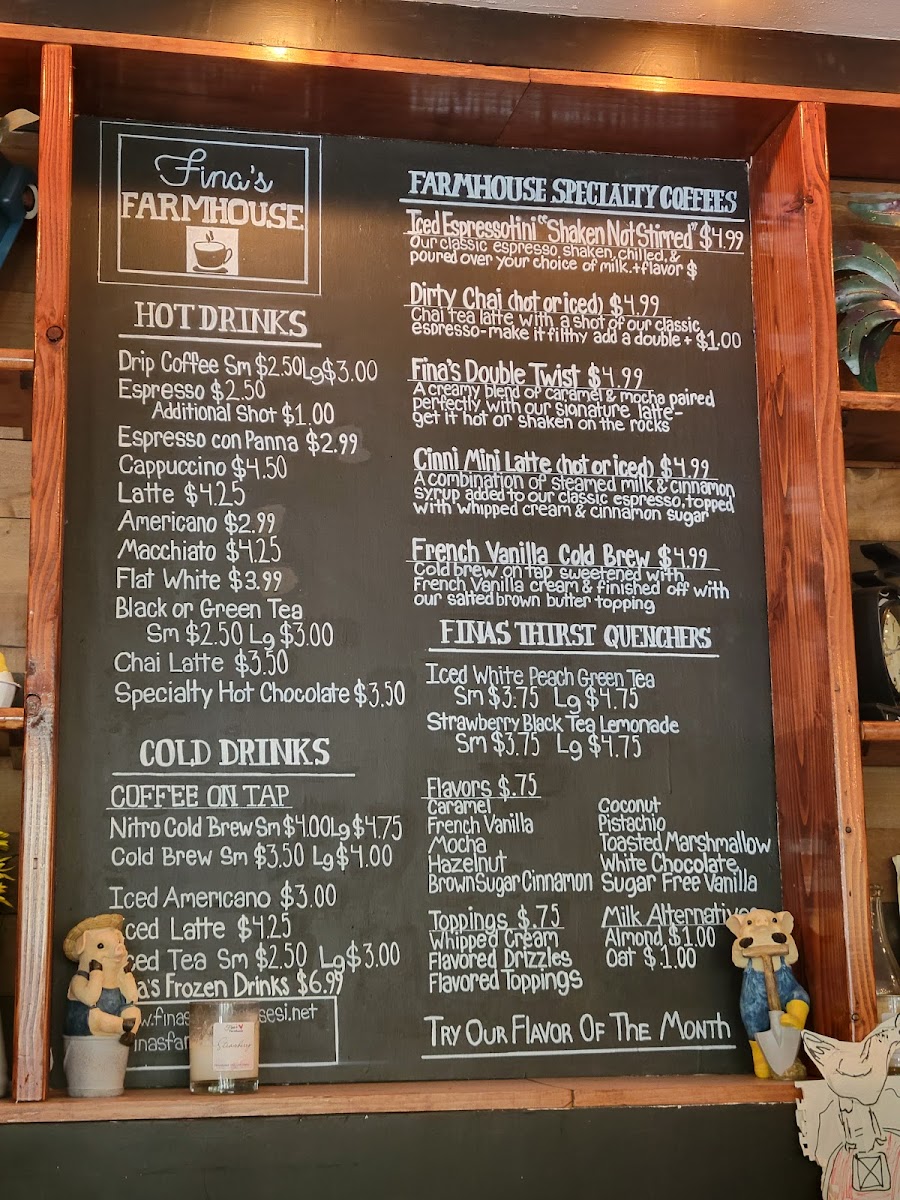 Fina's
FARMHOUSE
HOT DRINKS
Drip Coffee Sm $2.50 Lg $3.00
Espresso $2.50
Additional Shot $1.00
Espresso con Panna $2.99
Cappuccino $4.50
Latte $4.25
Americano $2.99
Macchiato $4.25
Flat White $3.99
Black or Green Tea
Sm $2.50 Lg $3.00
Chai Latte $3.50
Specialty Hot Chocolate $3.50
COLD DRINKS
COFFEE ON TAP
Nitro Cold Brew Sm $4.00 Lg $4.75
Cold Brew Sm $3.50 Lg $4.00
Iced Americano $3.00
ced Latte $4.25
ced Tea Sm $2.50 Lg $3.00
a's Frozen Drinks $6.99
w.finas
sesi.net
inasfar
FARMHOUSE SPECIALTY COFFEES
Iced Espressotini "Shaken Not Stirred" $4.99
Our classic espresso, shaken, chilled, &
poured over your choice of milk. +flavor $
Dirty Chai (hot or iced) $4.99
Chai tea latte with a shot of our classic
espresso-make it filthy add a double + $1.00
Fina's Double Twist $4.99
A creamy blend of caramel & mocha paired
perfectly with our signature latte-
get it hot or shaken on the rocks
Cinni Mini Latte (hot or iced) $4.99
A combination of steamed milk & cinnamon
syrup added to our classic espresso, topped
with whipped cream & cinnamon sugar
French Vanilla Cold Brew $4.99
Cold brew on tap sweetened with
French Vanilla cream & finished off with
our salted brown butter topping
FINAS THIRST QUENCHERS
Iced White Peach Green Tea
Sm $3.75 Lg $4.75
Strawberry Black Tea Lemonade
Sm $3.75 Lg $4.75
Flavors $.75
Caramel
French Vanilla
Mocha
Hazelnut
Brown Sugar Cinnamon
Coconut
Pistachio
Toasted Marshmallow
White Chocolate
Sugar Free Vanilla
Toppings $.75
Whipped Cream
Flavored Drizzles
Flavored Toppings
Milk Alternatives
Almond $1.00
Oat $1.00
TRY OUR FLAVOR OF THE MONTH